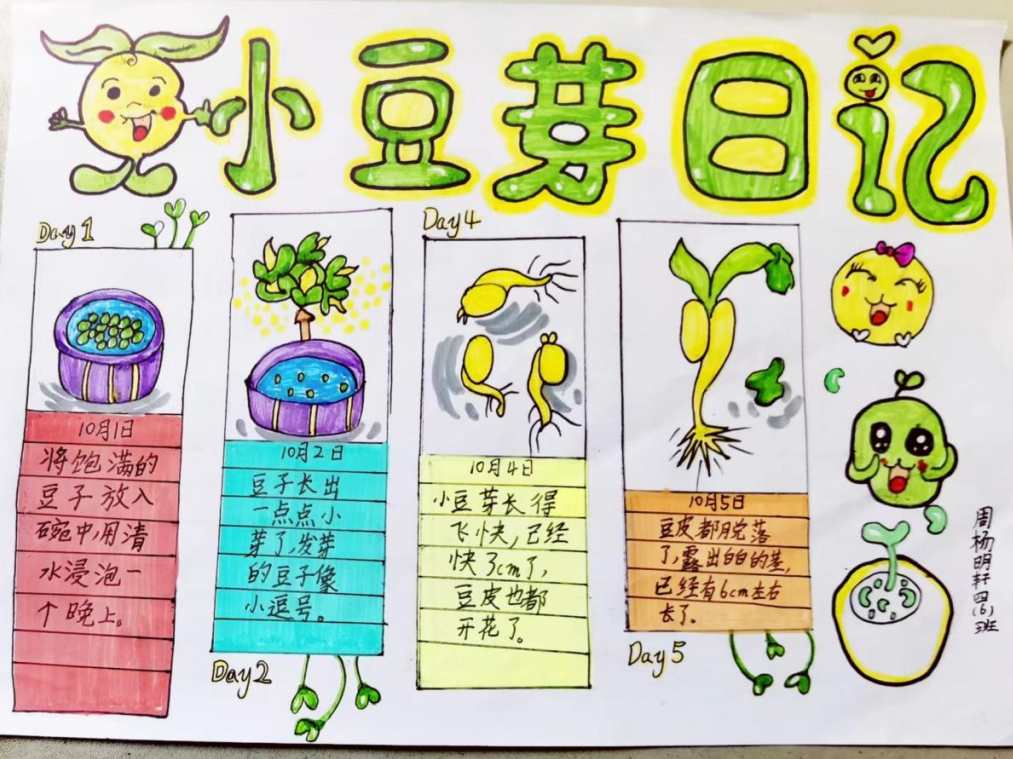 小豆芽日记
Day1
10月1日
将饱满的
豆子放入
碗中,用清
水浸泡一
个晚上。
10月2日
豆子长出
一点点小
芽了,发芽
的豆子像
小逗号。
Day2
Day4
10月4日
小豆芽长得
飞快,已经
快了3cm了,
豆皮也都
开花了。
10月5日
豆皮都脱落
了,露出白白的茎,
已经有6cm左右
长了。
Day5
周杨明轩四(6)班